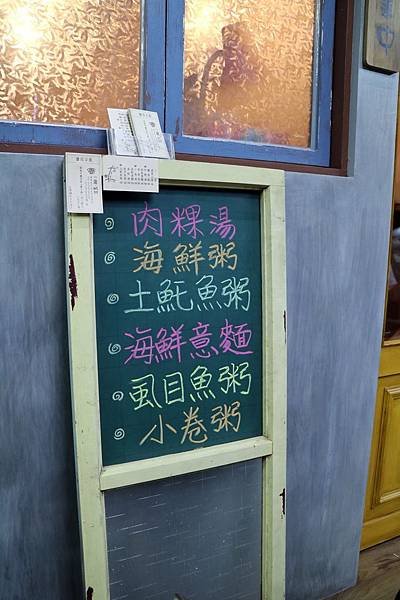 肉粿湯
海鮮粥
土魠魚粥
海鮮意麵
虱目魚粥
小卷粥